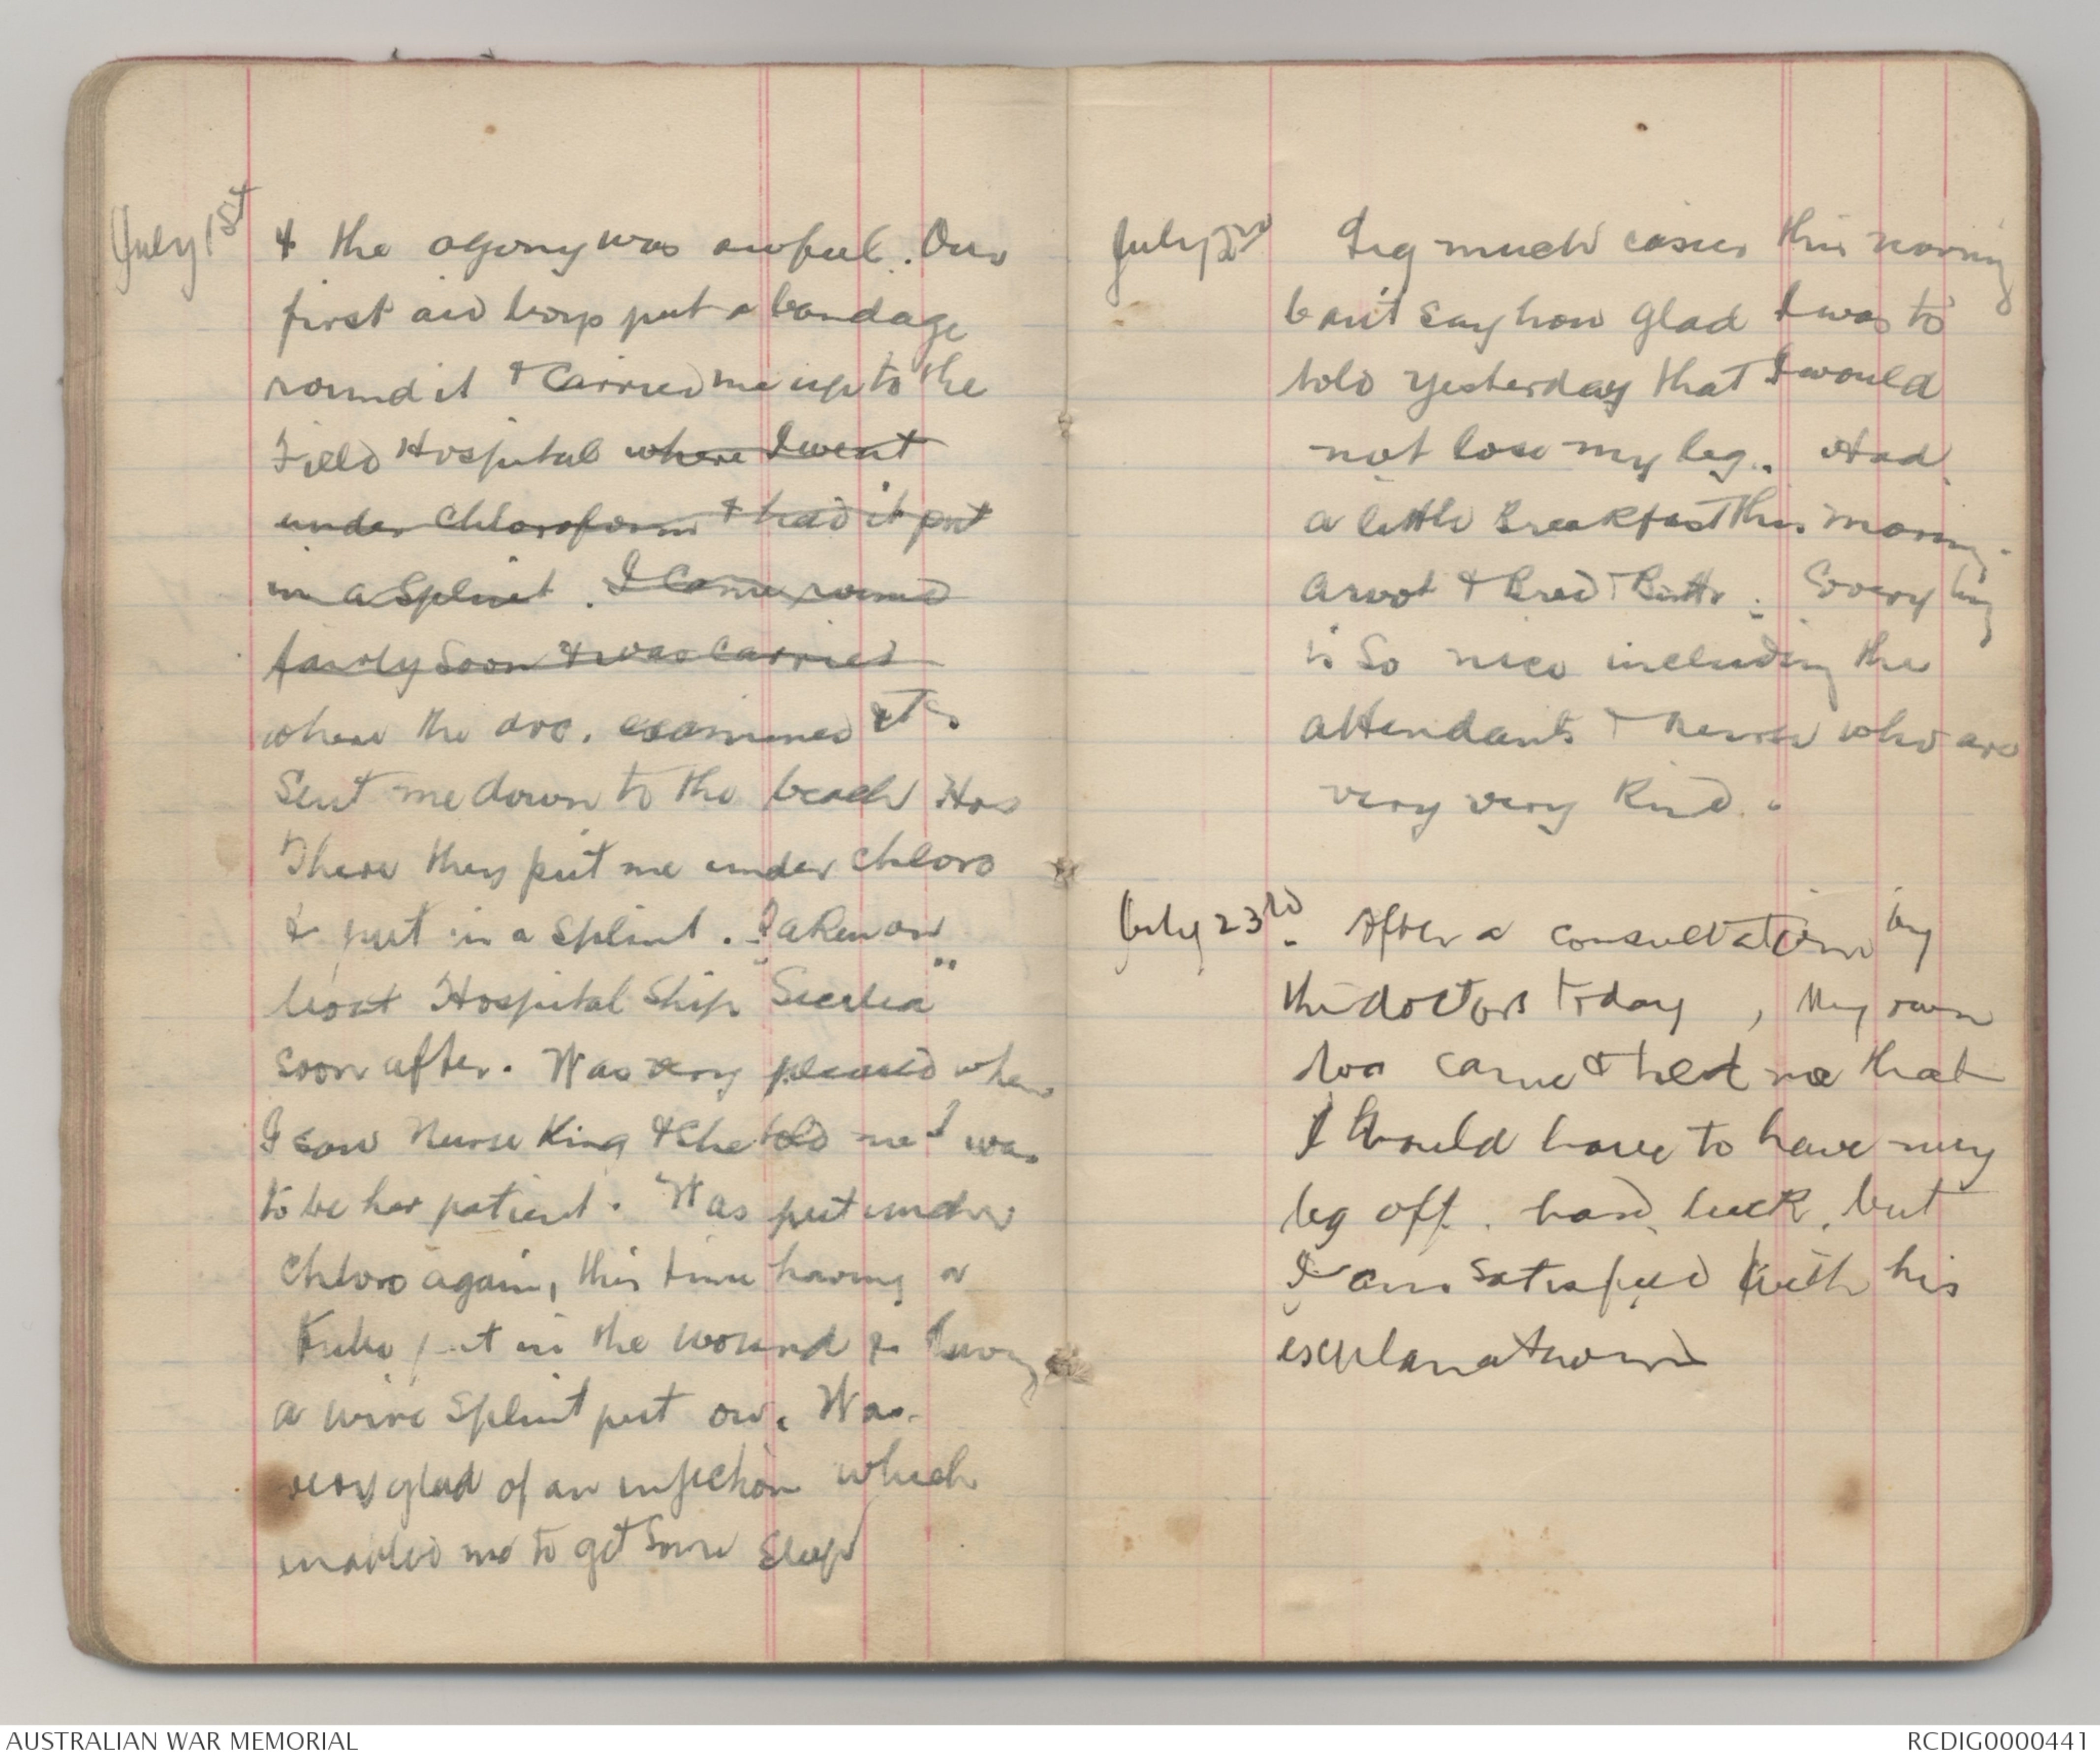 July 1st
& the agony was awful. Our
first aid boys put a bandage
round it & Carried me up to the
Field Hospital where I went
under Chloroform & had it put
in a Splint. I Came round
fairly Soon & was Carried
where the doc. examined it
Sent me down to the beach Hos
There they put me under Chloro
& put in a Splint. Taken on
boat Hospital Ship "Sicilia"
soon after. Was very pleased when
I saw Nurse King & She told me I was
to be her patient. Was put under
Chloro again, this time having a
tube put in the wound & having
a wire Splint put on. Was
very glad of an injection which
enabled me to get Some Sleep
July 2nd Leg much easier this morning
Can't say how glad I was to
told yesterday that I would
not lose my leg. Had
a little Breakfast this morning.
& Bred & Buttr. Everything
is So nice including the
attendants & nurses who are
very very Kind.
July 23rd. After a consultation by
the doctors today, they
came & told me that
I would have to have my
leg off. hard luck, but
I am satisfied with his
explanation
AUSTRALIAN WAR MEMORIAL
RCDIG0000441